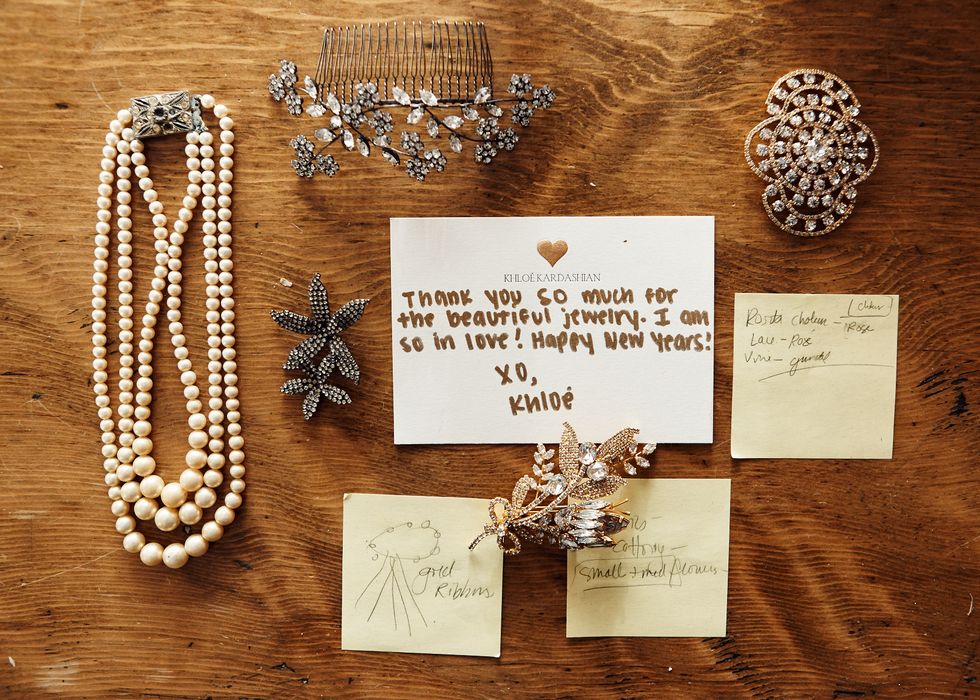 KHLOÉ KARDASHIAN
Thank you so much for
the beautiful jewelry. I am
so in love! Happy New Years!
XO,
Khloé
Rosita choker - Rose
Lace - Rose
Vine -
gold
Ribbons
small + med flowers